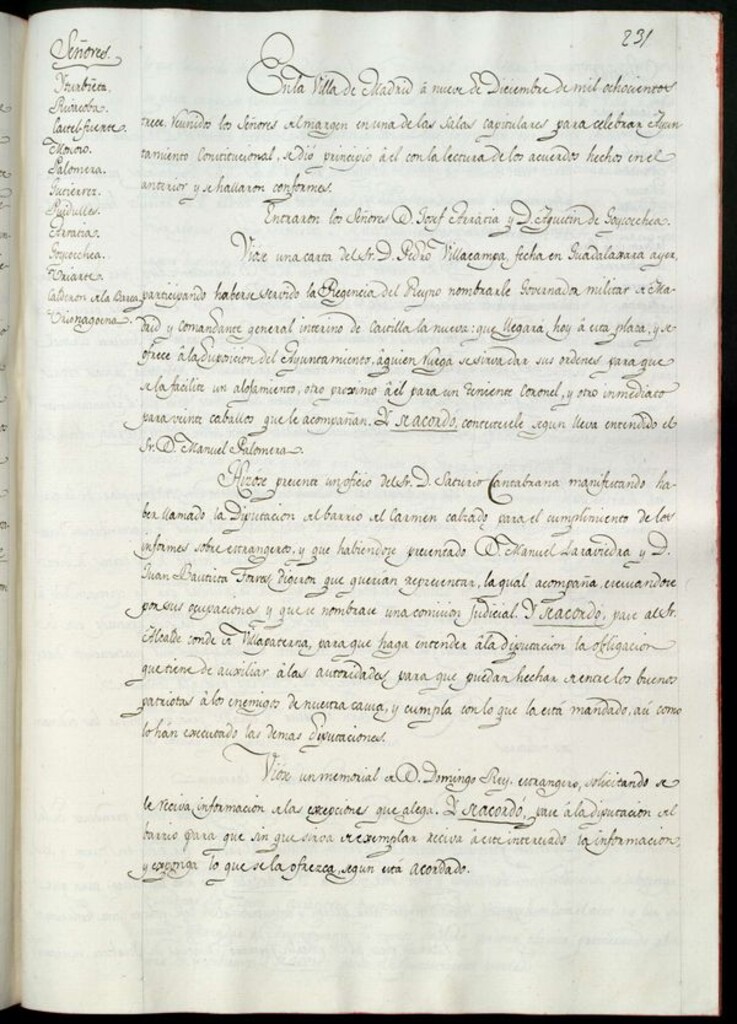 231
Señores.
Yturbieta.
Rivacoba.
Castel-fuerte.
Moroio.
Palomera.
Gutierrez.
Puidulles.
Arratia.
Goycoechea.
Uriarte.
Calderon de la Barca
Urionagoena.
En la Villa de Madrid á nueve de Diciembre de mil ochocientos
trece, reunidos los Señores del margen en una de las salas capitulares para celebrar Ayun
tamiento Constitucional, se dió principio á el con la lectura de los acuerdos hechos en el
anterior y se hallaron conformes.
Entraron los Señores D. Josef Arratia y D. Agustin de Goycoechea.
Viose una carta del Sr. D. Pedro Villacampa, fecha en Guadalaxara ayer,
participando haberse servido la Regencia del Reyno nombrarle Governador militar de Ma-
drid y Comandante general interino de Castilla la nueva: que llegará hoy á esta plaza, y se
ofrece á la disposicion del Ayuntamiento, á quien ruega se sirva dar sus ordenes para que
se la facilite un alojamiento, otro proximo á él para un teniente Coronel, y otro inmediato
para veinte caballos que le acompañan. Y se acordó, contestesele segun lleva entendido el
Sr. D. Manuel Palomera.
Hizose presente un oficio del Sr. D. Saturio Cantabrana manifestando ha-
ber llamado la Diputacion del barrio del Carmen calzado para el cumplimiento de los
informes sobre estrangeros, y que habiendose presentado D. Manuel Laraviedra y D.
Juan Bautista Torres digeron que querian representar, la qual acompaña, escusandose
por sus ocupaciones y que se nombrase una comision Judicial. Y se acordó, pase al Sr.
Alcalde conde de Villapaterna, para que haga entender á la diputacion la obligacion
que tiene de auxiliar á las autoridades para que puedan hechar de entre los buenos
patriotas á los enemigos de nuestra causa, y cumpla con lo que la está mandado, asi como
lo hán executado las demas Diputaciones.
Viose un memorial de D. Domingo Rey, estrangero, solicitando se
le reciva informacion de las excepciones que alega. Y se acordó, pase á la diputacion del
barrio para que sin que sirva de exemplar reciva á este interesado la informacion,
y exponga lo que se la ofrezca, segun está acordado.